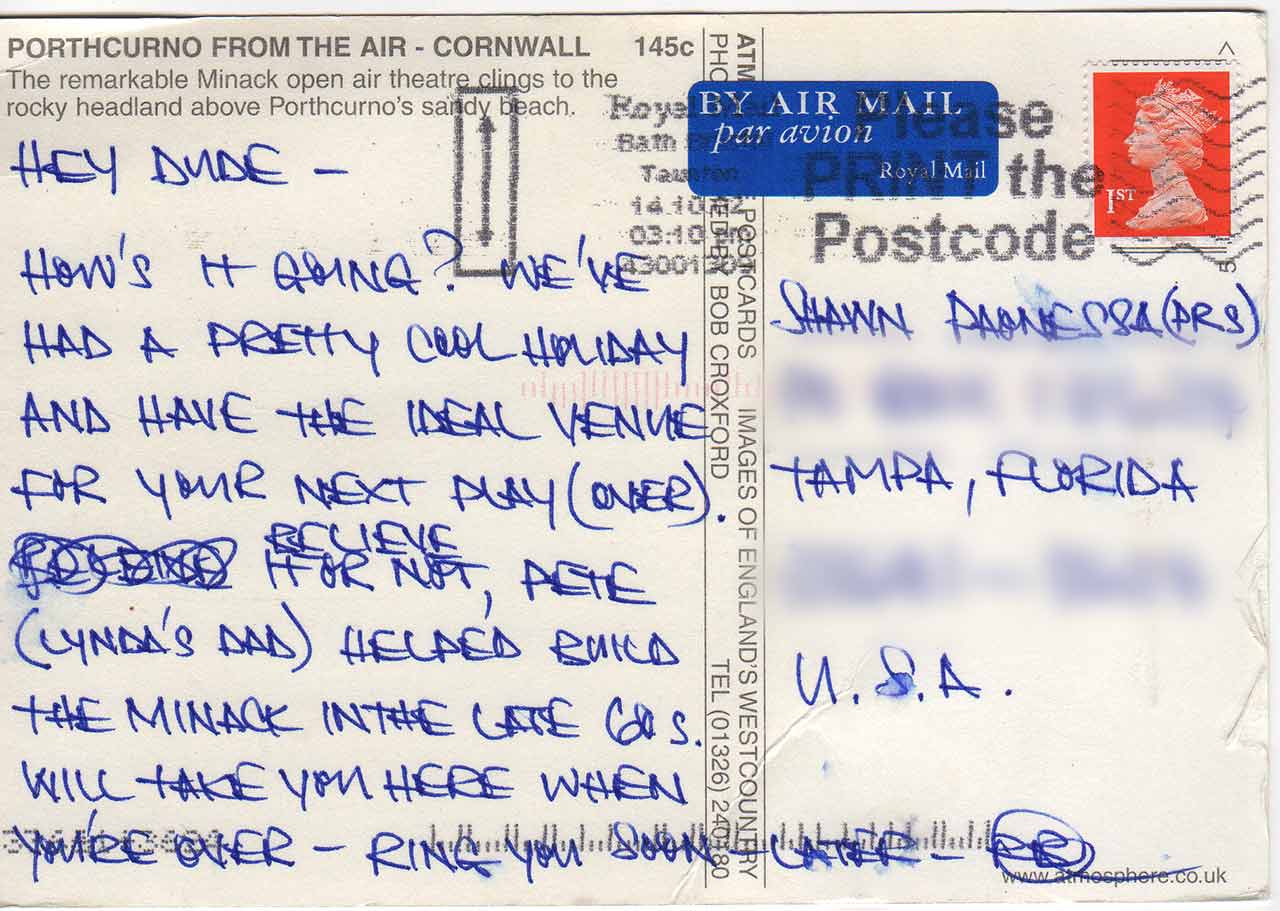 PORTHCURNO FROM THE AIR - CORNWALL 145c
The remarkable Minack open air theatre clings to the
rocky headland above Porthcurno's sandy beach.
HEY DUDE -
HOW'S IT GOING? WE'VE
HAD A PRETTY COOL HOLIDAY
AND HAVE THE IDEAL VENUE
FOR YOUR NEXT PLAY (OVER).
BELIEVE
IT OR NOT, PETE
(LYNDA'S DAD) HELPED BUILD
THE MINACK IN THE LATE 60s.
WILL TAKE YOU HERE WHEN
YOU'RE OVER - RING YOU SOON - LATER -
ATMOSPHERE POSTCARDS IMAGES OF ENGLAND'S WESTCOUNTRY
BOB CROXFORD TEL (01326) 240180
Royal Mail
Taunton
BY AIR MAIL
par avion
Royal Mail
Please
PRINT the
Postcode
1ST
5
SHAWN PAONESSA (PRS)
TAMPA, FLORIDA
U.S.A.
www.atmosphere.co.uk